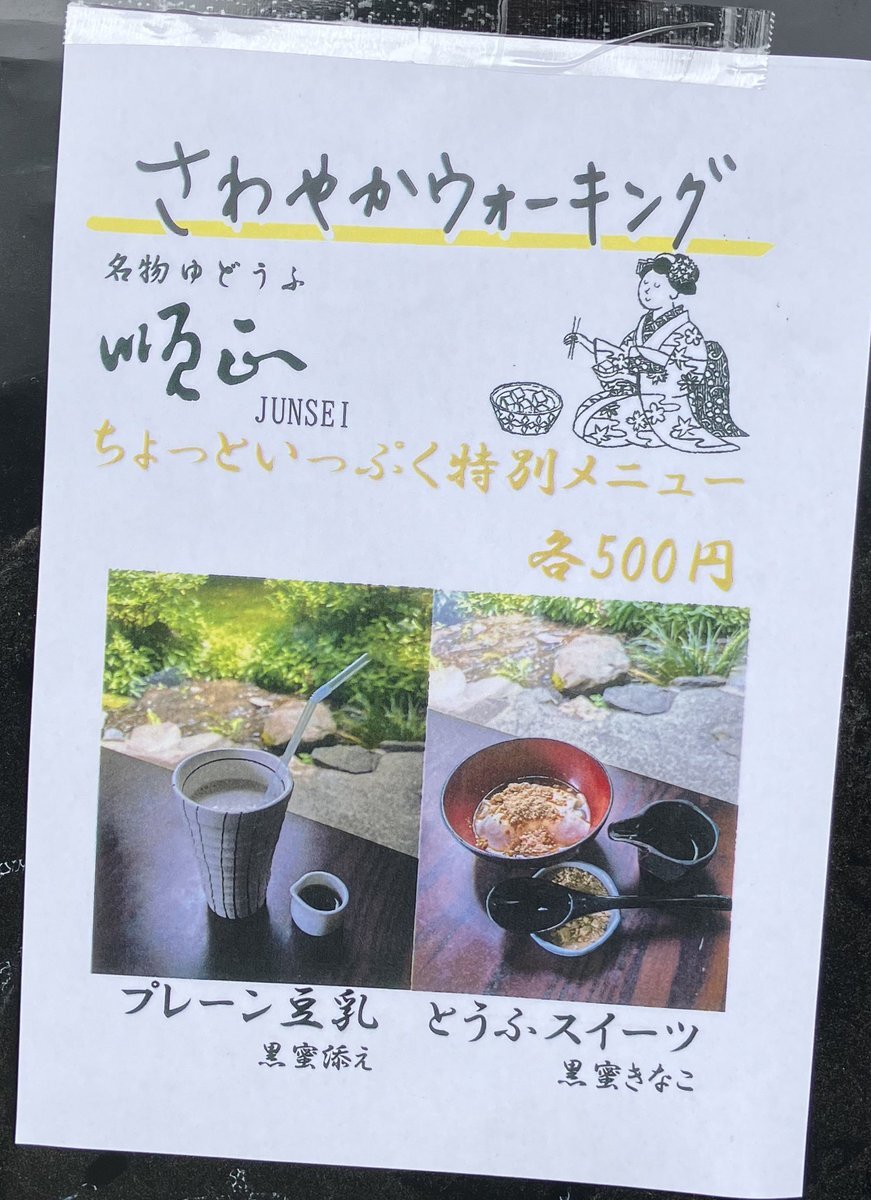 さわやかウォーキング
名物ゆどうふ
順正
JUNSEI
ちょっといっぷく特別メニュー
各500円
プレーン豆乳
黒蜜添え
とうふスイーツ
黒蜜きなこ